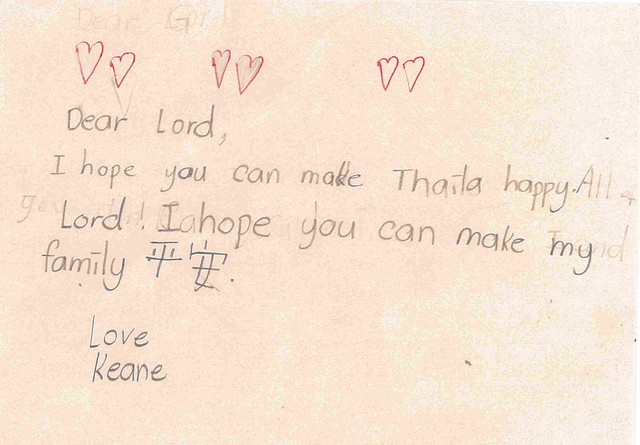 Dear Lord,
I hope you can make Thaila happy. All
Lord! I hope you can make my
family 平安.
Love
Keane